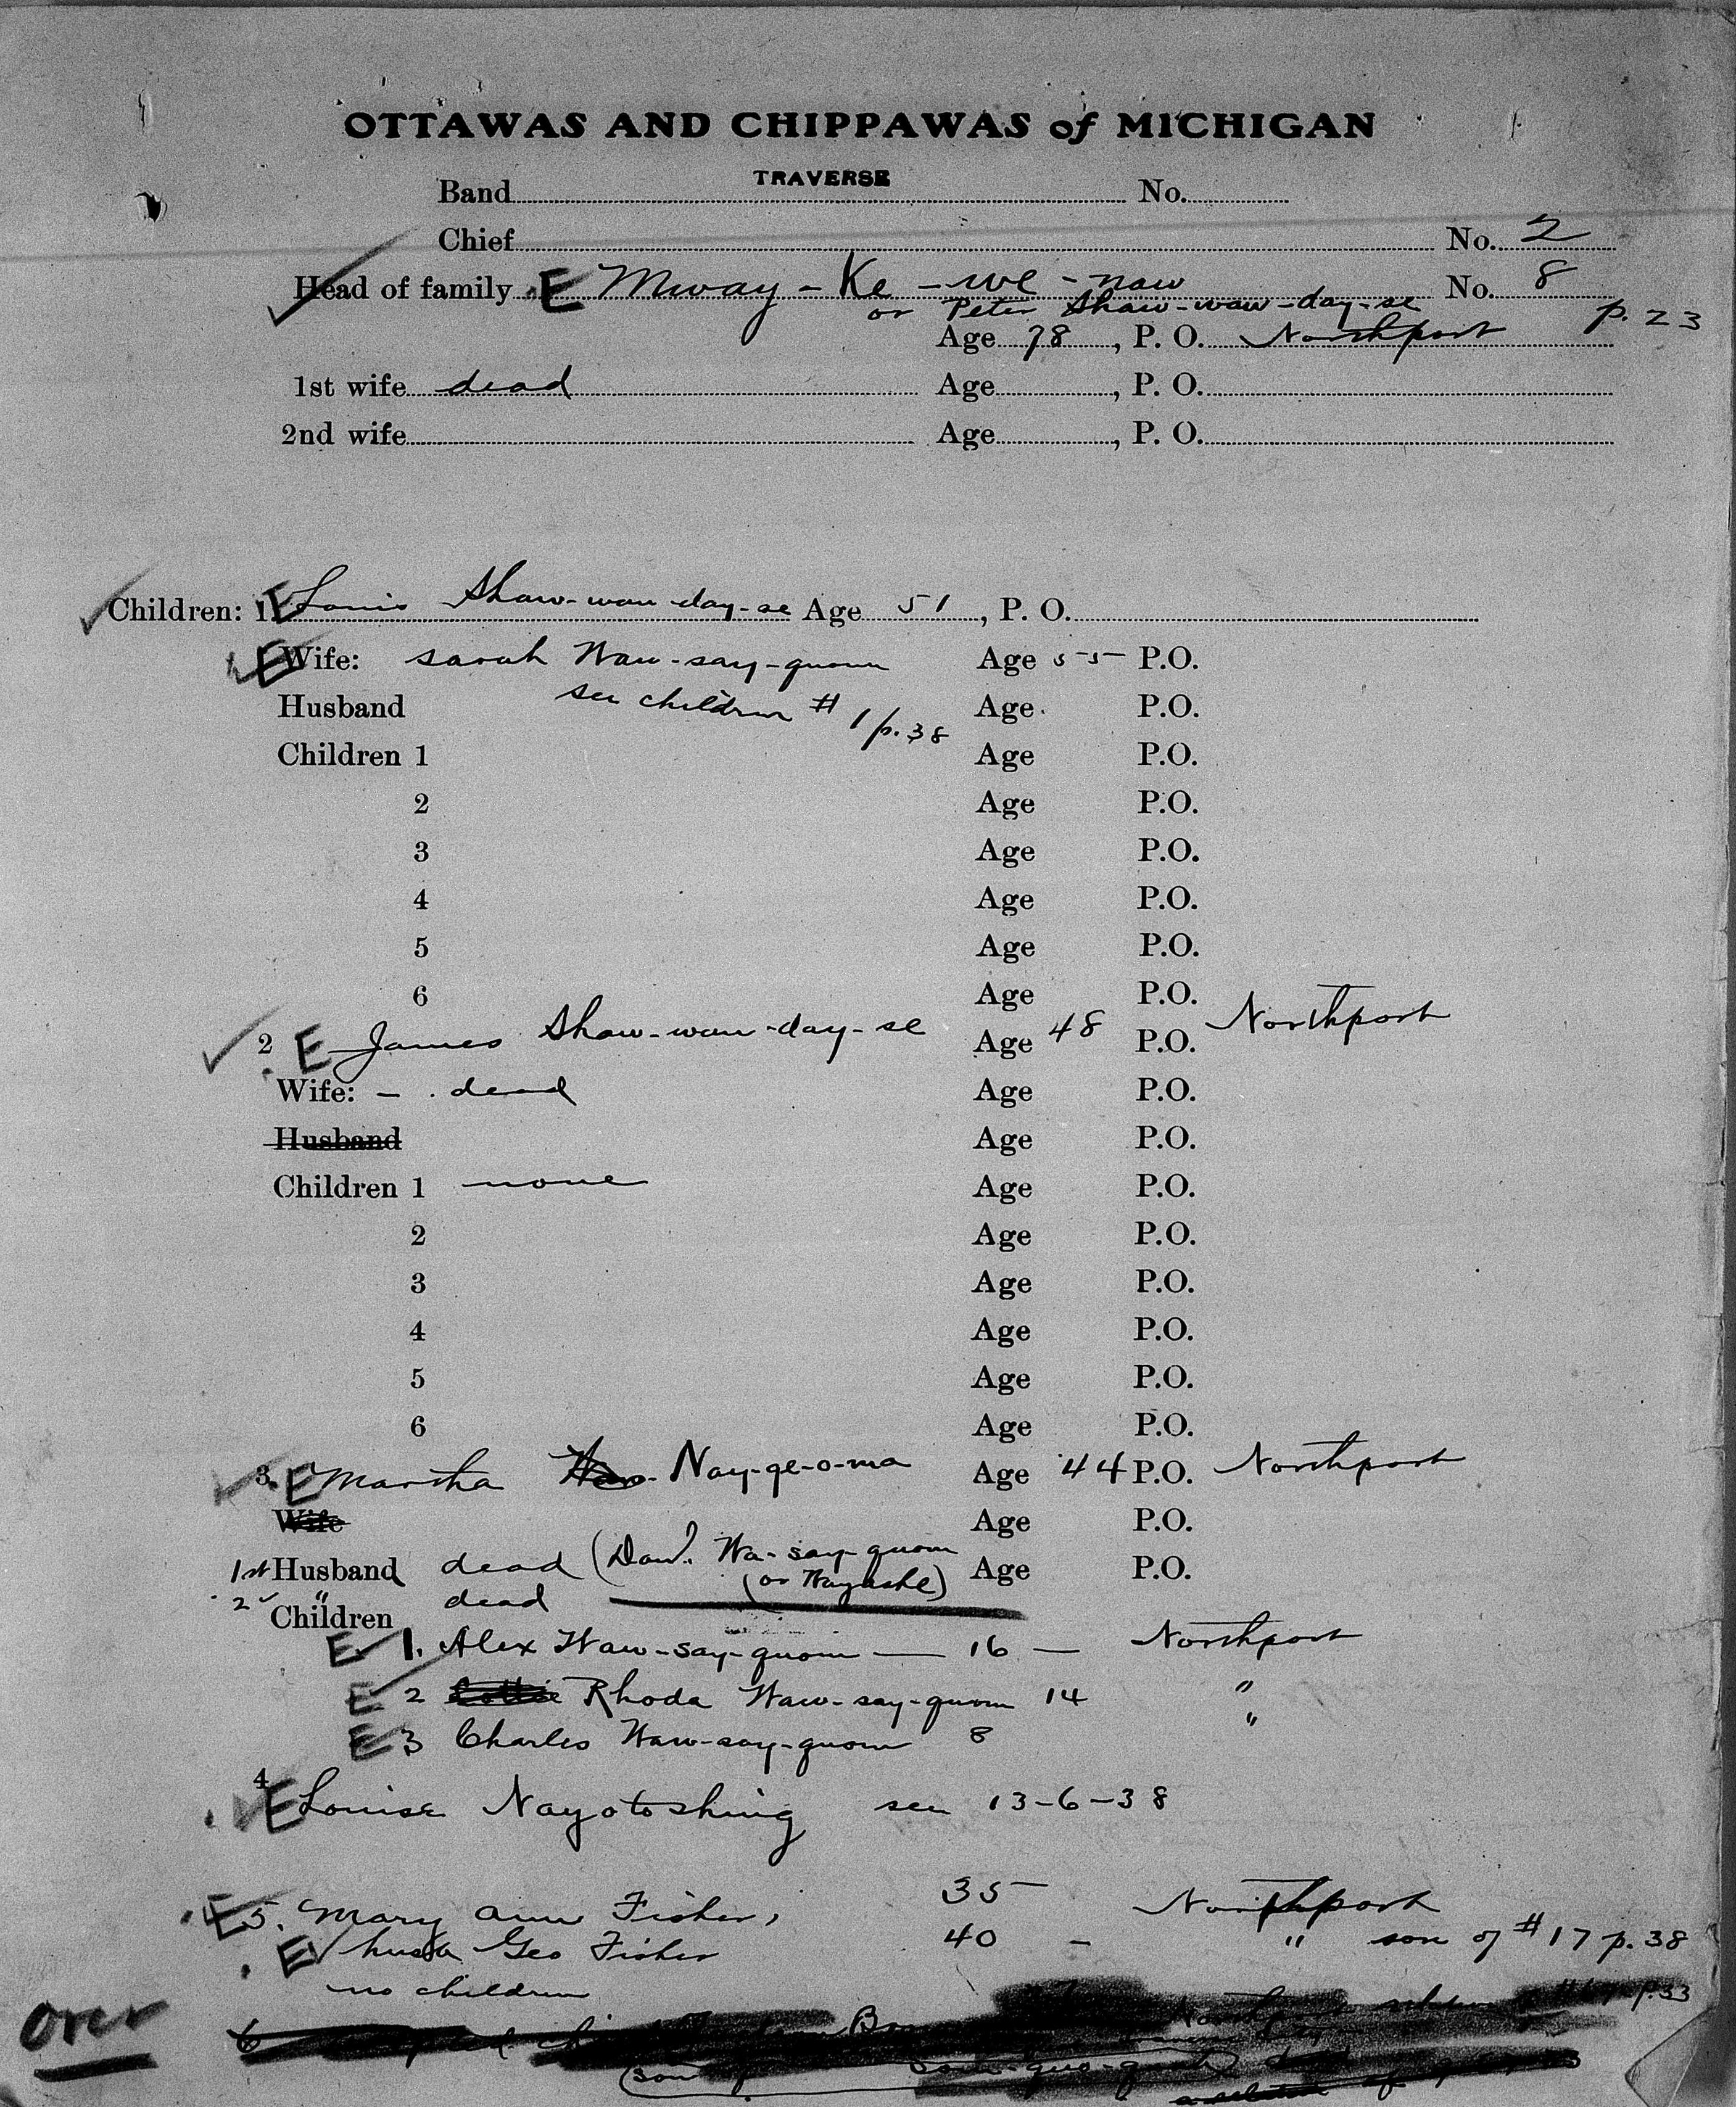 OTTAWAS AND CHIPPAWAS of MICHIGAN
Band TRAVERSE No.
Chief No. 2
Head of family E Mway-Ke-we-naw No. 8
or Peter Shaw-waw-day-se p. 23
Age 78, P. O. Northport
1st wife dead Age , P. O.
2nd wife Age , P. O.
Children: 1. E Louis Shaw-waw-day-se Age 51, P. O.
E Wife: Sarah Waw-say-quom Age 55 P.O.
Husband see children # 1 p. 38 Age P.O.
Children 1 Age P.O.
2 Age P.O.
3 Age P.O.
4 Age P.O.
5 Age P.O.
6 Age P.O.
2 E James Shaw-waw-day-se Age 48 P.O. Northport
Wife: - dead Age P.O.
Husband Age P.O.
Children 1 none Age P.O.
2 Age P.O.
3 Age P.O.
4 Age P.O.
5 Age P.O.
6 Age P.O.
3. E Martha Nay-ge-o-ma Age 44 P.O. Northport
Wife Age P.O.
1st Husband dead (Dav. Wa-say-quom Age P.O.
(or Wayashe)
2 " dead
Children
E 1. Alex Waw-say-quom — 16 — Northport
E 2 Rhoda Waw-say-quom 14 "
E 3 Charles Waw-say-quom 8 "
4 E Louise Nayotoshing see 13-6-38
E 5. Mary Ann Fisher, 35 Northport
E husb Geo Fisher 40 - " son of # 17 p. 38
no children
Over
6 p. 33
(son